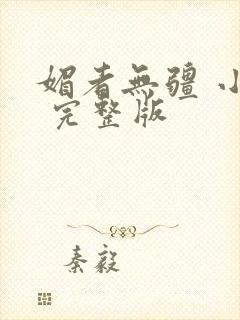 媚者無疆 小
完整版
秦毅